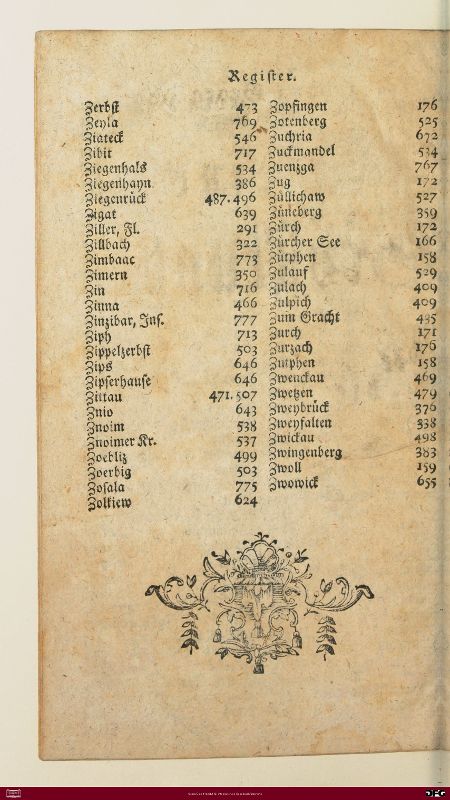 Register.
Zerbst 473
Zeyla 769
Ziateck 546
Zibit 717
Ziegenhals 534
Ziegenhayn 386
Ziegenrück 487.496
Zigat 639
Ziller, Fl. 291
Zillbach 322
Zimbaac 773
Zimern 350
Zin 716
Zinna 466
Zinzibar, Ins. 777
Ziph 713
Zippelzerbst 503
Zips 646
Zipserhause 646
Zittau 471.507
Znio 643
Znoim 538
Znoimer Kr. 537
Zoebliz 499
Zoerbig 503
Zofala 775
Zolkiew 624
Zopfingen 176
Zotenberg 525
Zuchria 672
Zuckmandel 534
Zuenzga 767
Zug 172
Züllichaw 527
Züneberg 359
Zürch 172
Zürcher See 166
Zütphen 158
Zulauf 529
Zulach 409
Zulpich 409
Zum Gracht 495
Zurch 171
Zurzach 176
Zutphen 158
Zwenckau 469
Zwetzen 479
Zweybrück 376
Zweyfalten 338
Zwickau 498
Zwingenberg 383
Zwoll 159
Zwowick 655